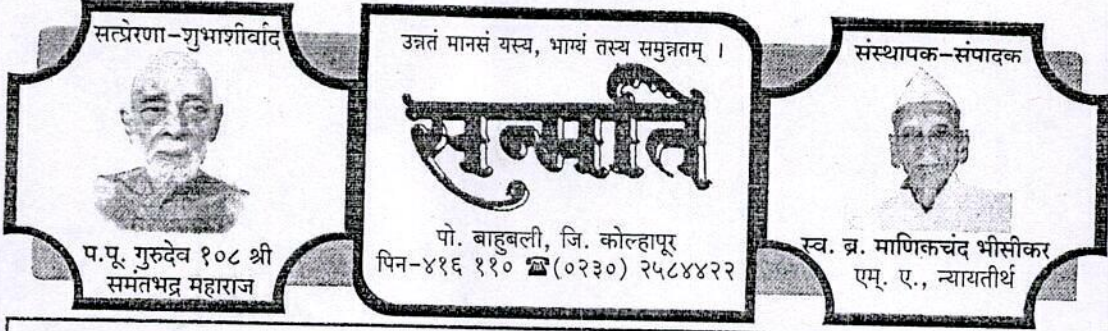 सत्प्रेरणा-शुभाशीर्वाद
प.पू. गुरुदेव १०८ श्री
समंतभद्र महाराज
उन्नतं मानसं यस्य, भाग्यं तस्य समुन्नतम् ।
सन्मति
पो. बाहुबली, जि. कोल्हापूर
पिन-४१६ ११० ☎(०२३०) २५८४४२२
संस्थापक-संपादक
स्व. ब्र. माणिकचंद भीसीकर
एम्. ए., न्यायतीर्थ